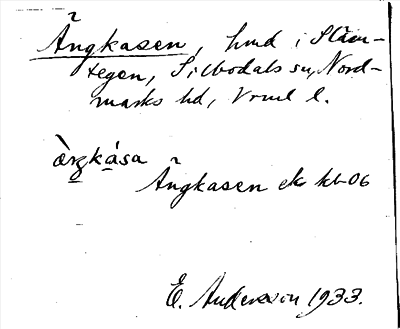 Ängkasen, hmd i Stäm-
tegen, Silbodals sn, Nord-
marks hd, Vrml l.
ängkasen ek kb 06
E. Andersson 1933.